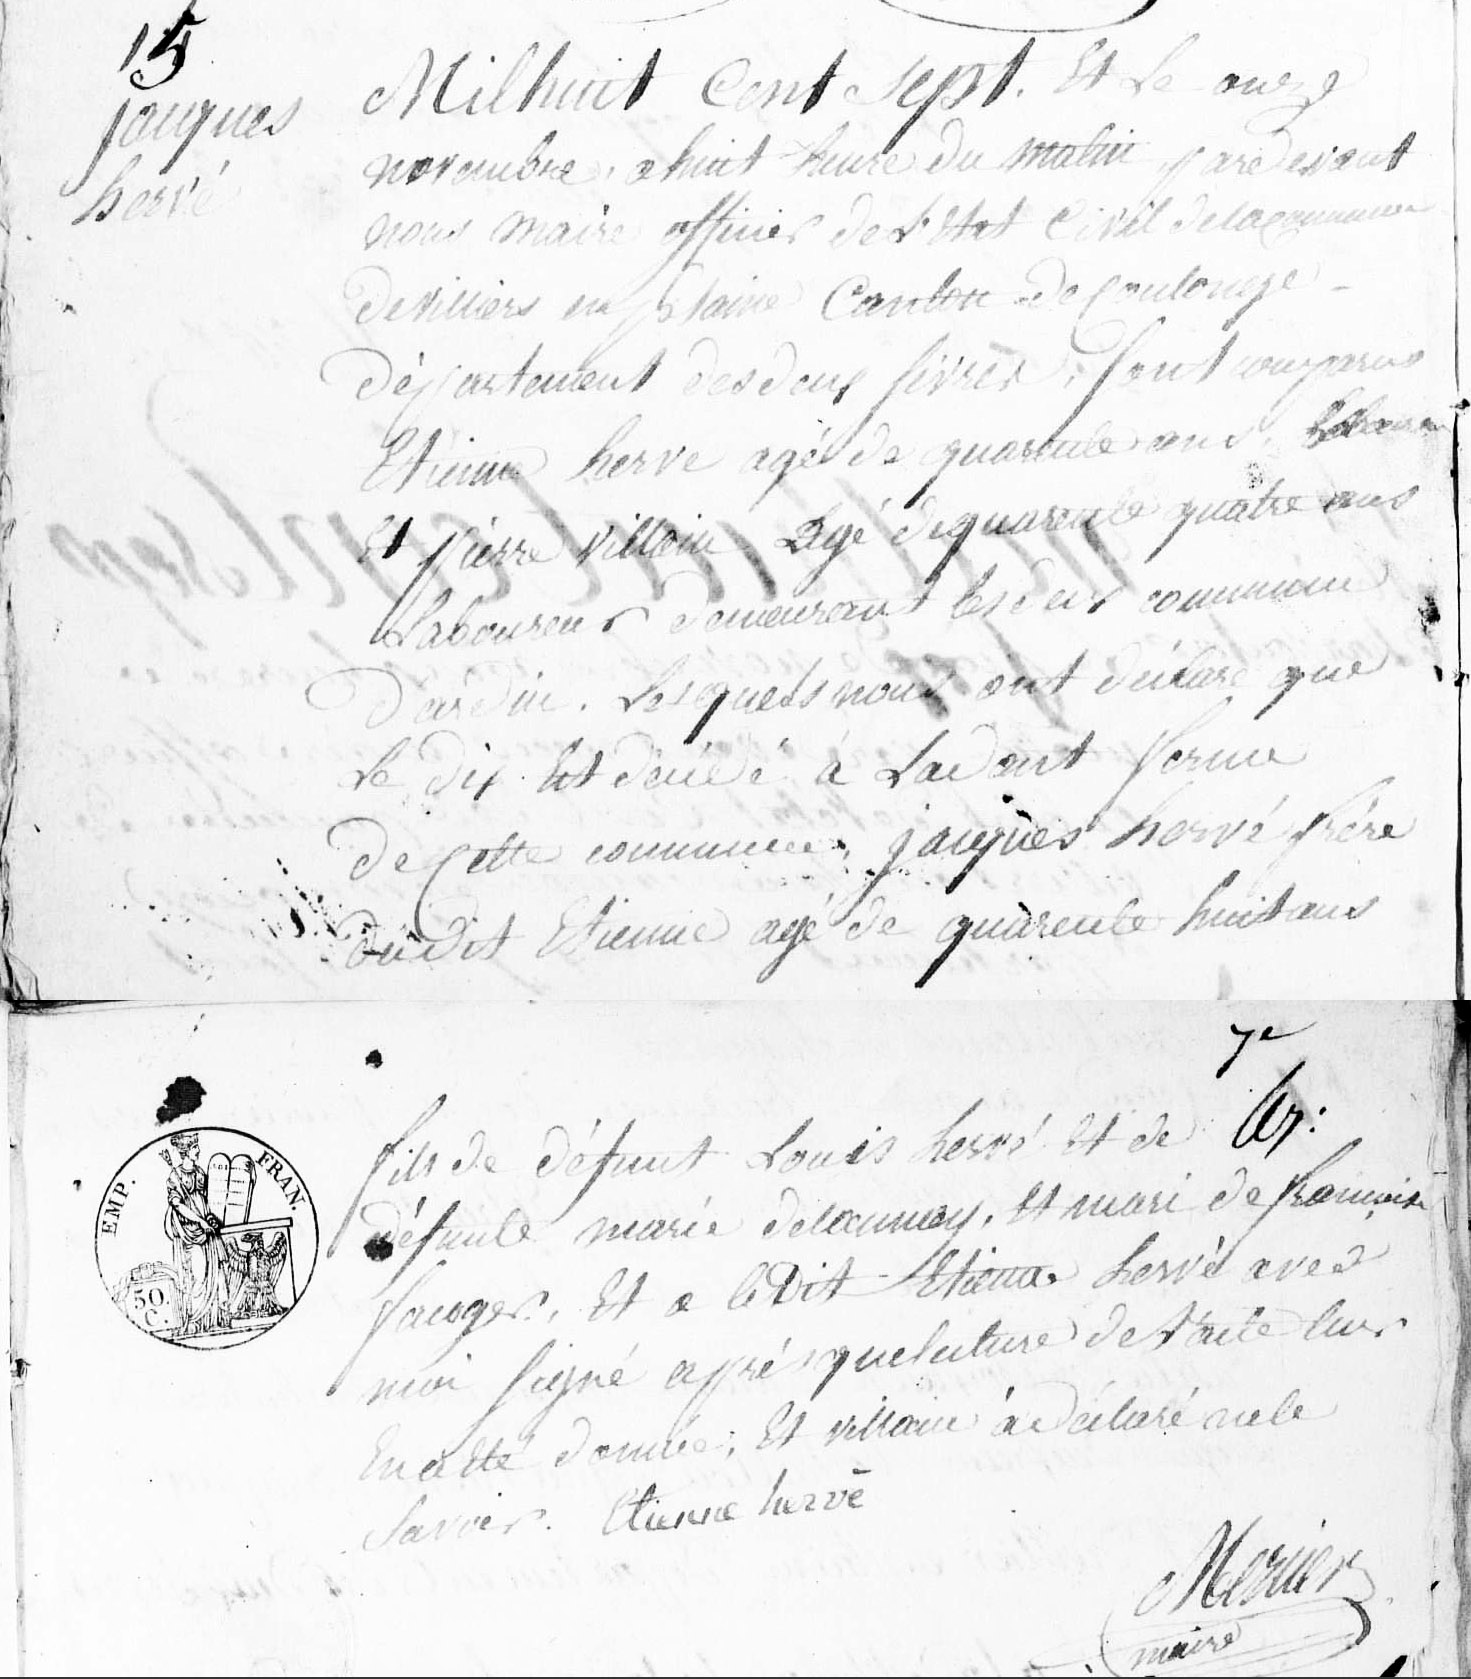 15
jacques
hervé
Mil huit Cent Sept. Et Le onze
novembre, a huit heure du matin pardevant
nous maire officier de L'Etat Civil de la commune
de villiers en plaine Canton de Coulonge
département des deux sèvres, sont comparus
Etienne herve agé de quarente ans.
Et pierre villain agé de quarente quatre ans
Laboureur demeurant les deux commune
d'ardin. Lesquels nous ont déclaré que
Le dix Est décédé à Ladent ferme
de Cette commune, jacques hervé frère
du dit Etienne agé de quarente huit ans
7e
fils de défunt Louis hervé Et de
défunte marie delaunay, Et mari de francoise
fauger, Et a le Dit Etienne hervé avec
moi signé après que lecture de l'acte leur
En a Eté donnée, Et villain à déclaré ne le
Savoir. Etienne hervé
Mercier
maire
EMP. FRAN.
50
C.